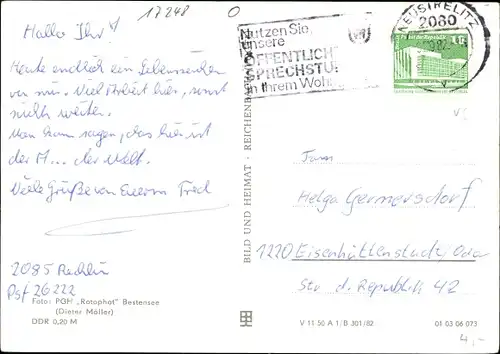 Hallo Ihr!
17248
Heute endlich ein Lebenszeichen
von mir. Viel Arbeit hier, sonst
nichts weiter.
Man kann sagen, das hier ist
der M... der Welt.
Viele Grüße von Eurem Fred
2085 Rechlin
Psf 26222
Foto: PGH „Rotophot" Bestensee
(Dieter Möller)
DDR 0,20 M
BILD UND HEIMAT · REICHENB
Nutzen Sie
unsere
ÖFFENTLICH
SPRECHSTU
in Ihrem Wohn
NEUSTRELITZ
2080
Fam
Helga Germersdorf
1220 Eisenhüttenstadt/Oder
Str d. Republik 42
V 11 50 A 1/B 301/82
01 03 06 073
4,-